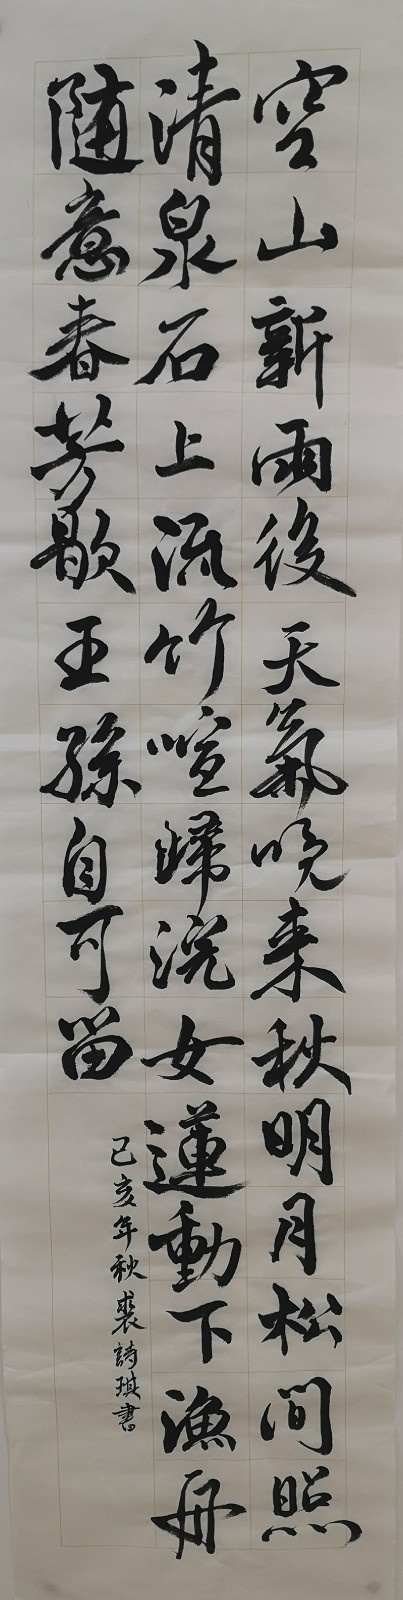 空山新雨後天氣晚来秋明月松间照
清泉石上流竹喧歸浣女蓮動下漁舟
随意春芳歇王孫自可留
己亥年秋裘詩琪書